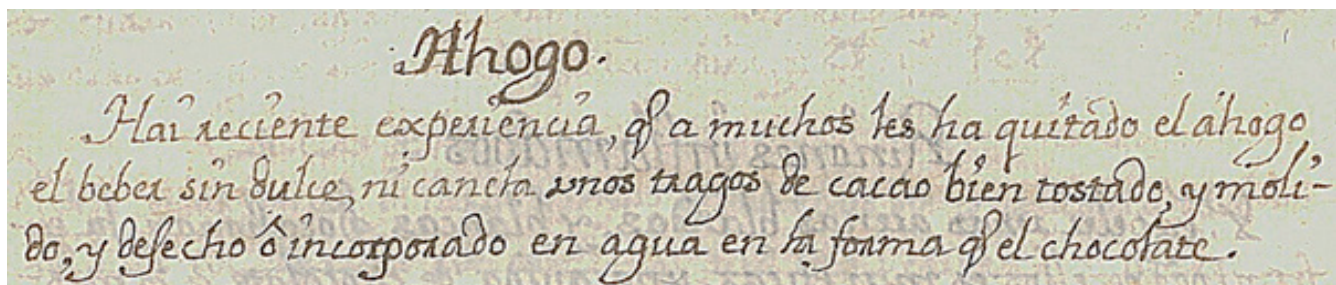 Ahogo.
Hai reciente experiencia, q̃ a muchos les ha quitádo el áhogo
el beber sin dulce, ni canela unos tragos de cacao bien tostado, y moli-
do, y desecho ô incorporado en agua en la forma q̃ el chocolate.